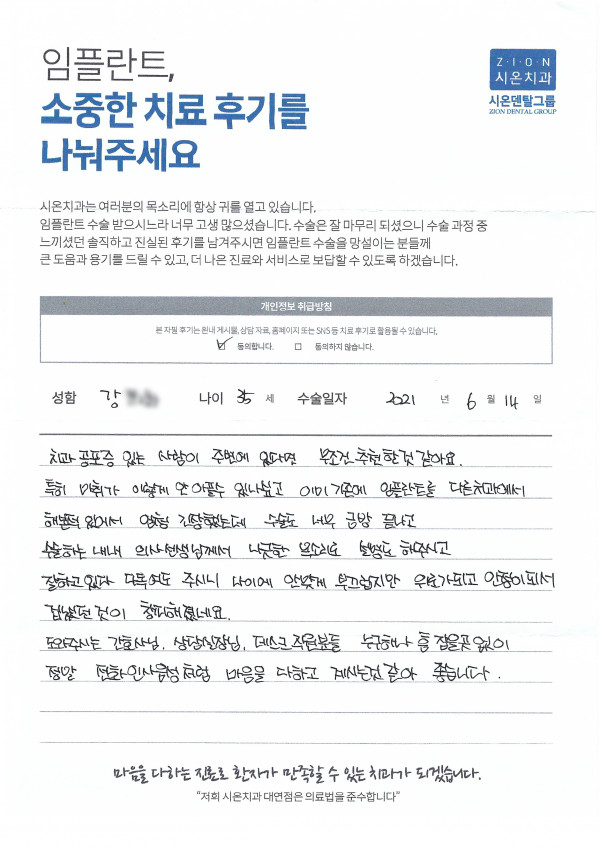 임플란트,
소중한 치료 후기를
나눠주세요
Z·I·O·N
시온치과
시온덴탈그룹
ZION DENTAL GROUP
시온치과는 여러분의 목소리에 항상 귀를 열고 있습니다.
임플란트 수술 받으시느라 너무 고생 많으셨습니다. 수술은 잘 마무리 되셨으니 수술 과정 중
느끼셨던 솔직하고 진실된 후기를 남겨주시면 임플란트 수술을 망설이는 분들께
큰 도움과 용기를 드릴 수 있고, 더 나은 진료와 서비스로 보답할 수 있도록 하겠습니다.
개인정보 취급방침
본 자필 후기는 원내 게시물, 상담 자료, 홈페이지 또는 SNS 등 치료 후기로 활용될 수 있습니다.
동의합니다. 동의하지 않습니다.
성함 강 나이 35 세 수술일자 2021 년 6 월 14 일
치과 공포증 있는 사람이 주변에 있다면 무조건 추천할것 같아요.
특히 마취가 이렇게 안 아플수 있나싶고 이미 기존에 임플란트를 다른치과에서
해본적 있어서 엄청 긴장했는데 수술도 너무 금방 끝나고
수술하는 내내 의사선생님께서 나긋한 목소리로 설명도 해주시고
잘하고있다 다독여도 주시니 나이에 안맞게 부끄럽지만 위로가되고 안정이되서
겁냈던 것이 창피해졌네요.
도와주시는 간호사님, 상담실장님, 데스크 직원분들 누구하나 흠 잡을곳 없이
정말 전화인사음성처럼 마음을 다하고 계시는것 같아 좋습니다.
마음을 다하는 진료로 환자가 만족할 수 있는 치과가 되겠습니다.
“저희 시온치과 대연점은 의료법을 준수합니다”